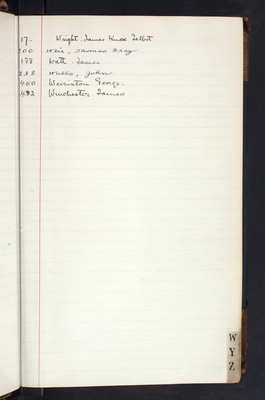 17. Wright. James Knox Talbot
200 Weir, Thomas Gray
178 Watt. James
238 Wells, John
400 George.
492 Winchester James
W
Y
Z